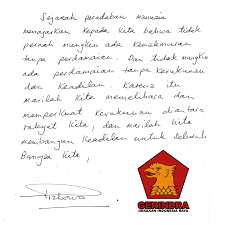 Sejarah peradaban manusia
mengajarkan kepada kita bahwa tidak
pernah mungkin ada kemakmuran
tanpa perdamaian. Dan tidak mungkin
ada perdamaian tanpa kerukunan
dan keadilan. Karena itu
marilah kita memelihara dan
memperkuat kerukunan diantara
rakyat kita, dan marilah kita
membangun keadilan untuk seluruh
Bangsa kita,
GERINDRA
GERAKAN INDONESIA RAYA